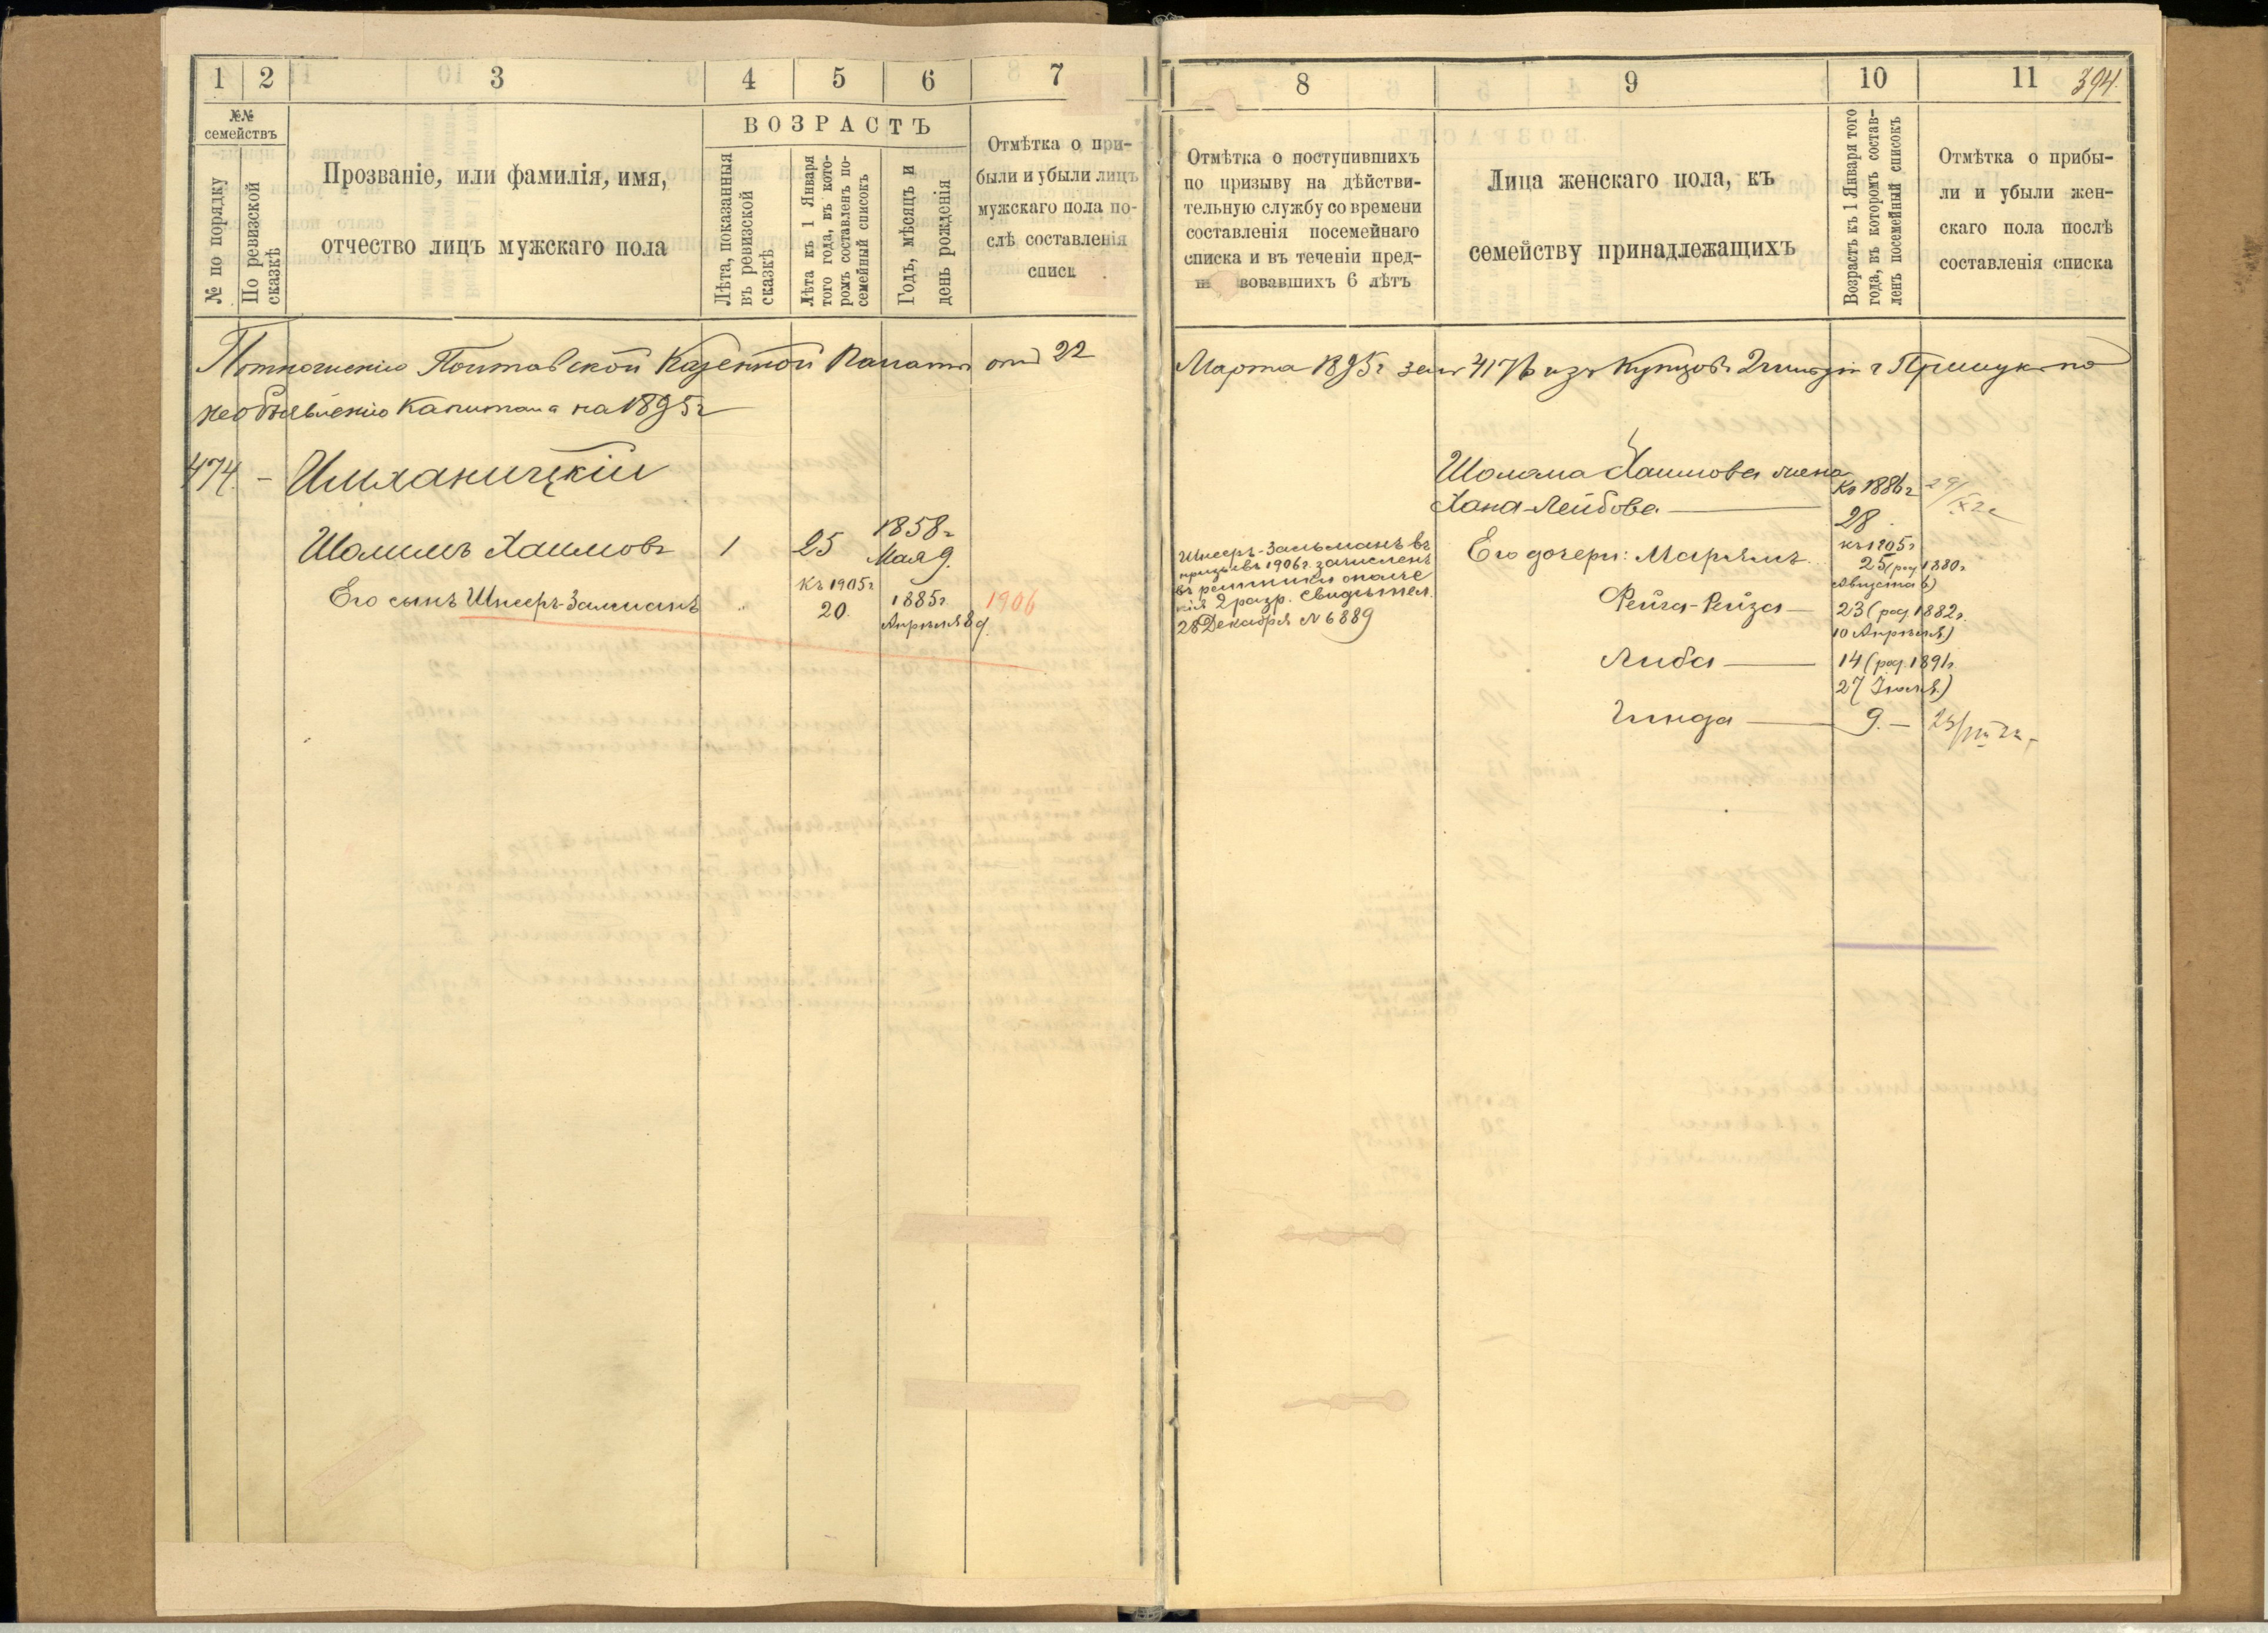 1 2 3 4 5 6 7
№№ семействъ
№ по порядку
По ревизской сказкѣ
Прозваніе, или фамилія, имя,
отчество лицъ мужскаго пола
ВОЗРАСТЪ
Лѣта, показанныя
въ ревизской
сказкѣ
Лѣта къ 1 Января
того года, въ кото-
ромъ составленъ по-
семейный списокъ
Годъ, мѣсяцъ и
день рожденія
Отмѣтка о при-
были и убыли лицъ
мужскаго пола по-
слѣ составленія
списк
По отношенію Полтавской Казенной Палаты отъ 22
необъявленію капитала на 1895 г
474. -
Шолимъ Хаимовъ 1 25 1858 г
Мая 9.
Его сынъ Шнееръ-Залманъ " Къ 1905 г
20. 1885 г.
Апрѣля 8 д. 1906
8 9 10 11 394.
Отмѣтка о поступившихъ
по призыву на дѣйстви-
тельную службу со времени
составленія посемейнаго
списка и въ теченіи пред-
ш вовавшихъ 6 лѣтъ
Лица женскаго пола, къ
семейству принадлежащихъ
Возрастъ къ 1 Января того
года, въ которомъ состав-
ленъ посемейный списокъ
Отмѣтка о прибы-
ли и убыли жен-
скаго пола послѣ
составленія списка
Марта 1895 г за № 4176 изъ Купцовъ 2 гильдіи г Прилукъ по
Шолома Хаимова жена
Хана-Лейбова — Къ 1886 г
28
Шнееръ-Зальманъ въ
призывъ 1906 г. зачисленъ
въ ратники ополче
нія 2 разр. Свидѣтел.
28 Декабря № 6889
Его дочери: Марьямъ къ 1905 г
25 (род 1880 г
Августа 6)
Рейза — 23 (род. 1882 г.
10 Апрѣля)
Либа — 14 (род. 1891 г.
27 Іюля.)
Гинда — 9. —